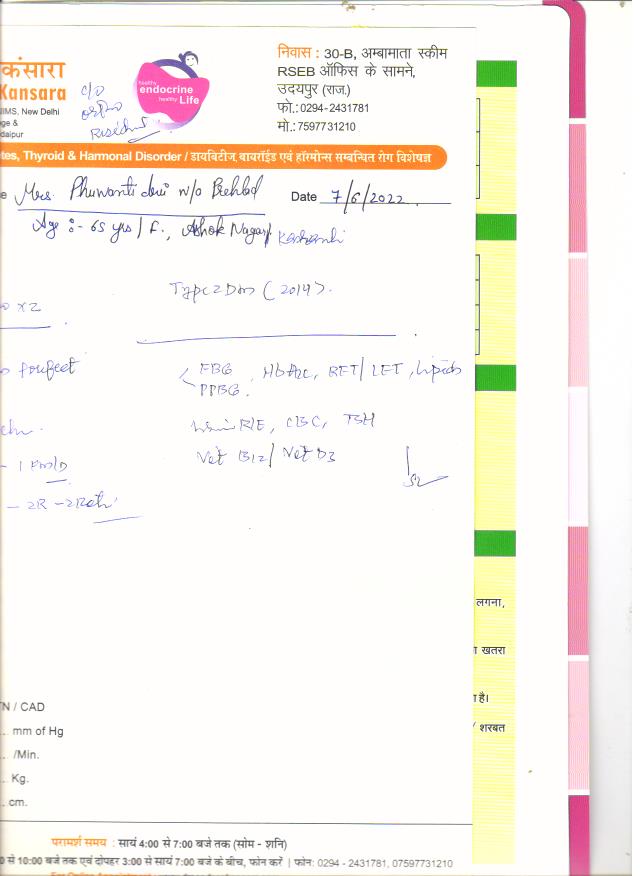 कंसारा
Kansara
IIMS, New Delhi
ge &
daipur
c/o
ortho
healthy
endocrine
healthy Life
निवास : 30-B, अम्बामाता स्कीम
RSEB ऑफिस के सामने,
उदयपुर (राज.)
फो.:0294-2431781
मो.:7597731210
tes, Thyroid & Harmonal Disorder / डायबिटीज,थायरॉईड एवं हॉरमोन्स सम्बन्धित रोग विशेषज्ञ
e Mrs. Phuwanti devi w/o
Date 7/6/2022
Age :- 65 yrs / F., Ashok Nagar,
Type 2 Dm (2014).
x2
FBG , HbA1c, RFT/ LFT, Lipids
PPBG.
R/E, CBC, TSH
Vit B12 / Vit D3
- 2R -
लगना,
ा खतरा
ा है।
/ शरबत
TN / CAD
.. mm of Hg
.. /Min.
.. Kg.
.. cm.
परामर्श समय : सायं 4:00 से 7:00 बजे तक (सोम - शनि)
0 से 10:00 बजे तक एवं दोपहर 3:00 से सायं 7:00 बजे के बीच, फोन करें | फोन: 0294 - 2431781, 07597731210